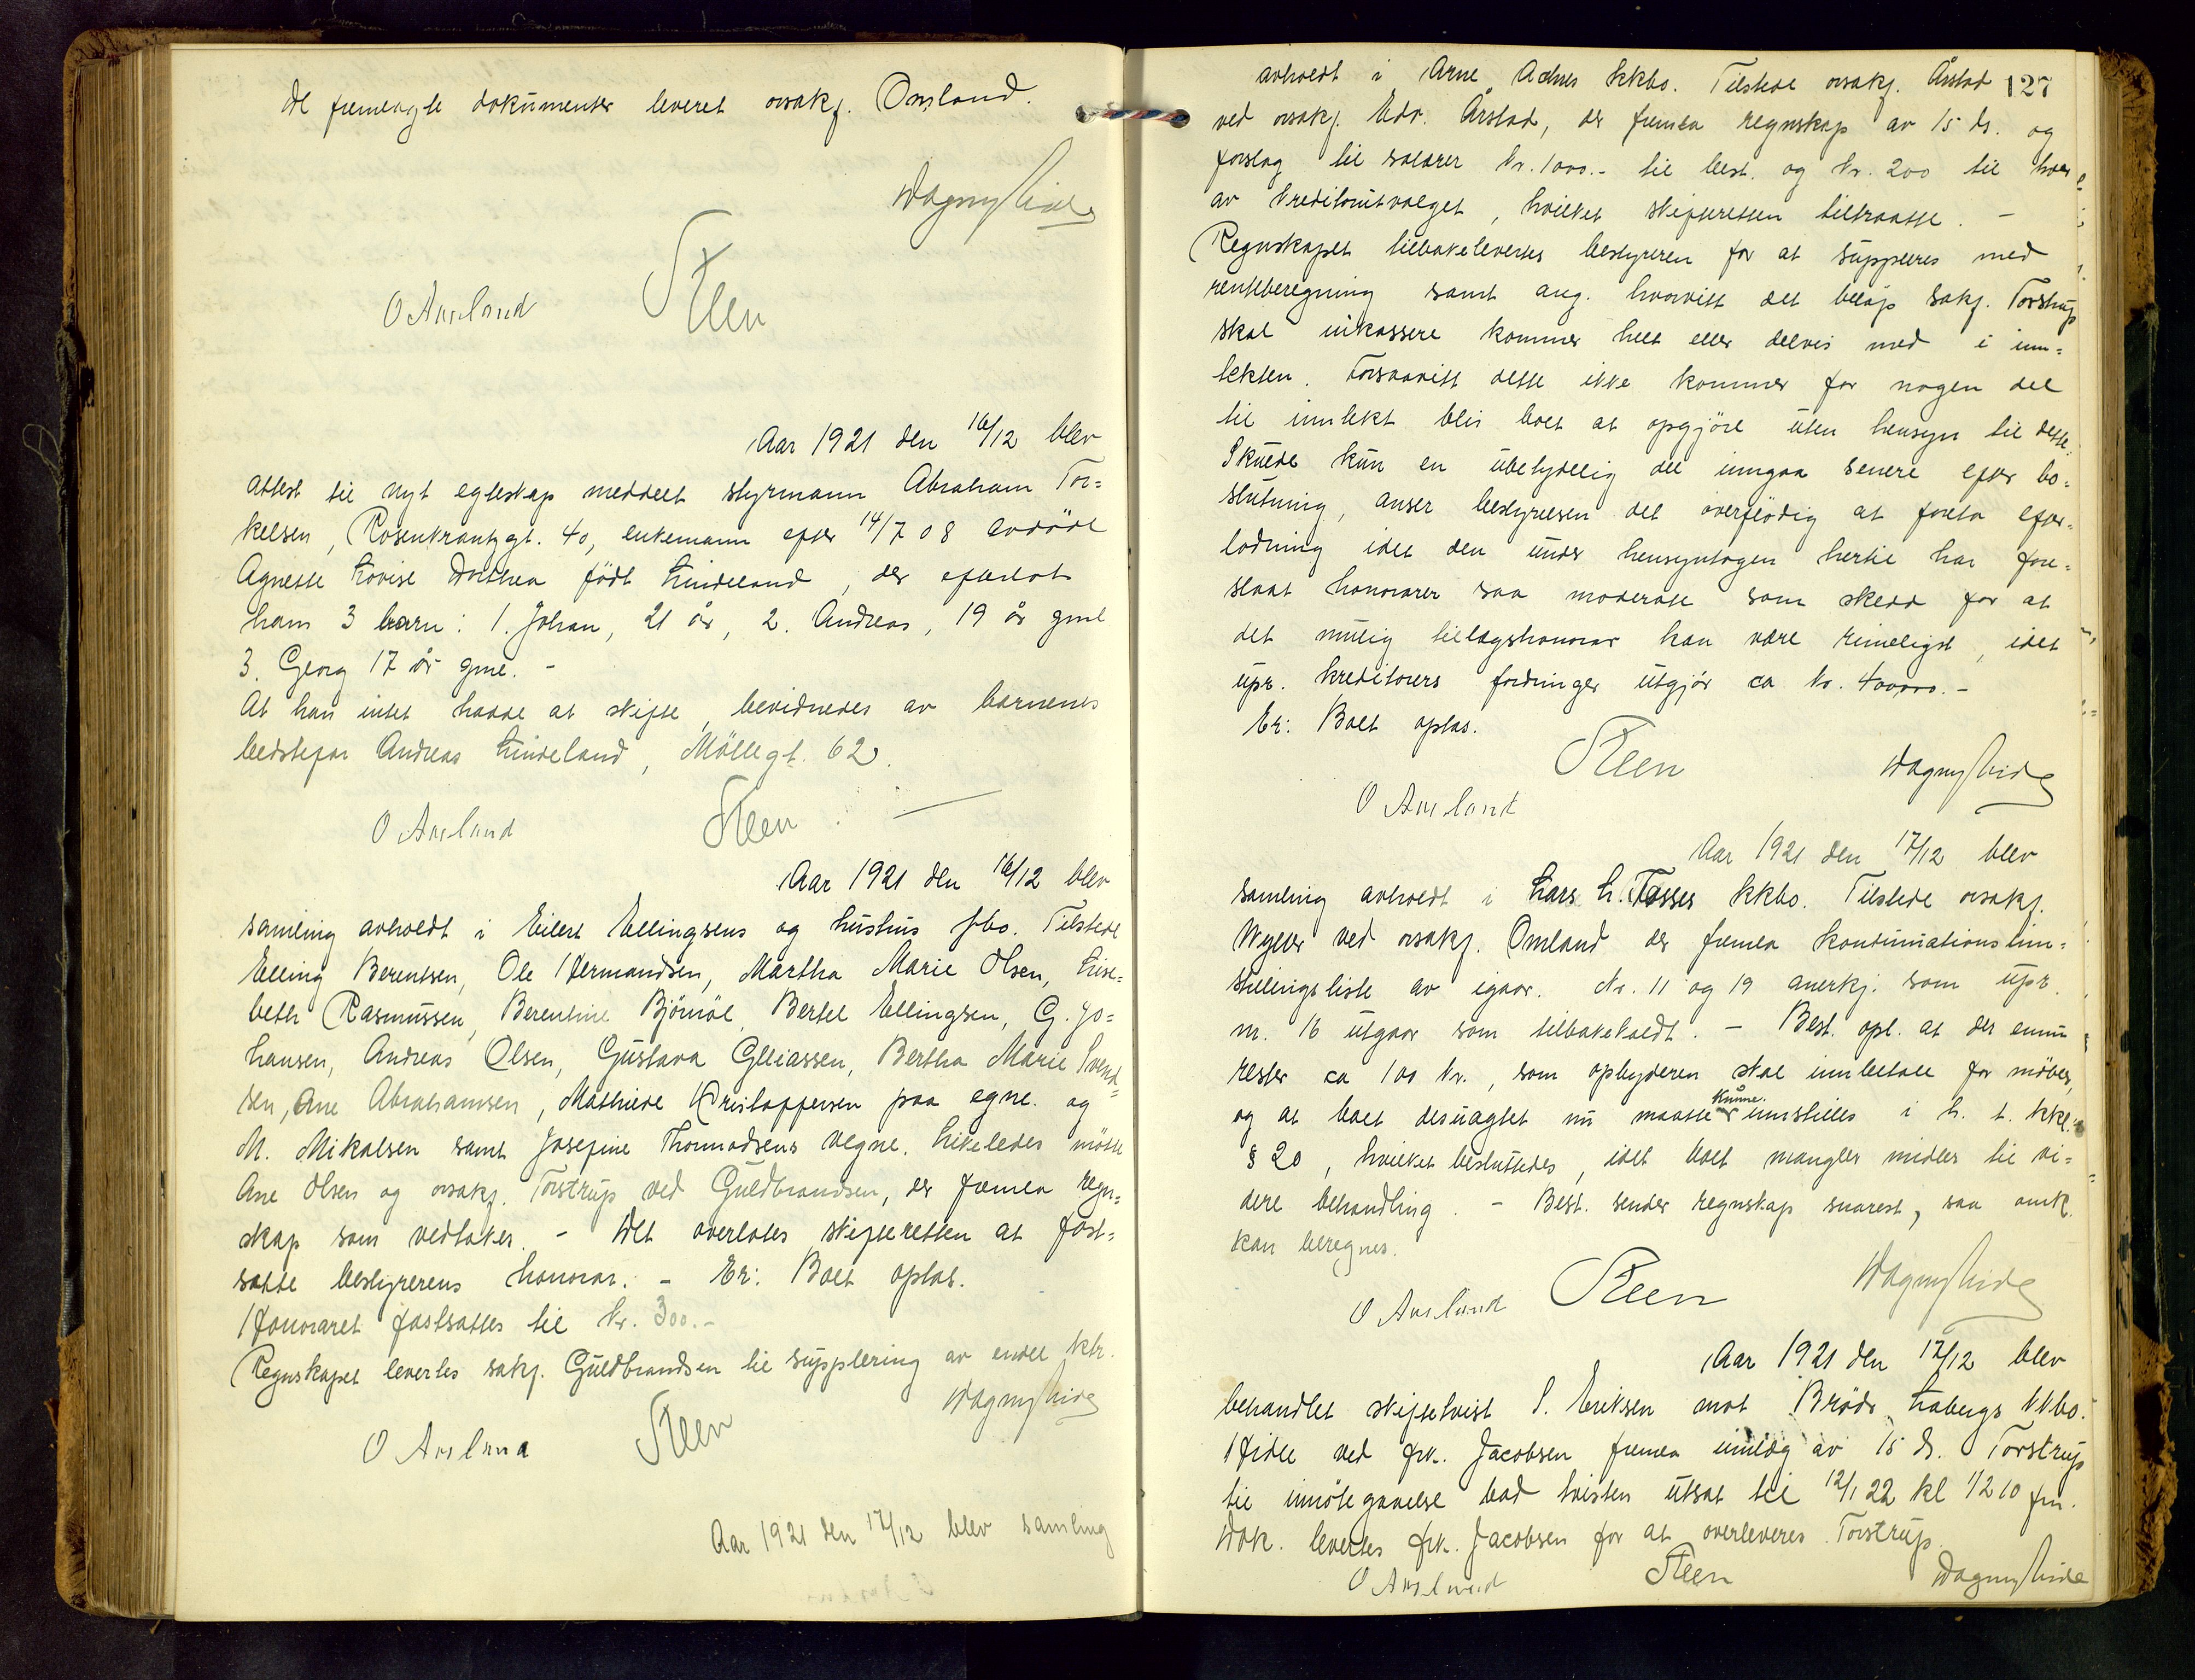 De fremlagte dokumenter leveret orsakf. Omland.
Dagny Lide
Steen
O Aurlund
Aar 1921 den 16/12 blev
attest til nyt egteskap meddelt styrmann Abraham Tor=
kelsen, Rosenkrantzgt. 40, enkemann efter 14/7 08 avdöde
Agnethe Lovise Dorthea född Lindeland, der efterlot
ham 3 barn: 1. Johan, 21 år, 2. Andreas, 19 år gml
3. Georg 17 år gml. -
At han intet hadde at skifte, bevidnedes av barnenes
bedstefar Andreas Lindeland, Möllegt. 62.
O Aurlund Steen
Aar 1921 den 16/12 blev
samling avholdt i Eilert Ellingsens og hustrus fbo. Tilstede
Elling Berentsen, Ole Hermandsen, Martha Marie Olsen, Lise=
beth Rasmussen, Berentine Bjömöl, Bertel Ellingsen, G. Jo=
hansen, Andreas Olsen, Gustava Elliassen, Bertha Marie Svend=
sen, Ane Abrahamsen, Mathilde Kristoffersen paa egne og
M. Mikalsen samt Josefine Thormodsens vegne. Likeledes mötte
Ane Olsen og orsakf. Torstrup ved Guldbrandsen, der fremla regn=
skap som vedtokes. - Det overlotes skifteretten at fast=
satte bestyrerens honorar. - Er: Boet oplat.
Honoraret fastsattes til kr. 300.-
Regnskapet levertes sakf. Guldbrandsen til supplering av endel ktr.
Dagny Lide
O Aurlund Steen
Aar 1921 den 17/12 blev samling
127
avholdt i Arne Adnes kkbo. Tilstede orsakf. Årstad
ved orsakf. Edv. Årstad, der fremla regnskap av 15 ds. og
forslag til salarer kr. 1000.- til best. og kr. 200 til hver
av kreditorutvalget, hvilket skifteretten tiltraatte. -
Regnskapet tilbakelevertes bestyreren for at suppleres med
renteberegning samt ang. hvorvitt det belöp sakf. Torstrup
skal inkassere kommer helt eller delvis med i inn=
tekten. Forsaavitt dette ikke kommer for nogen del
til inntekt blir boet at opgjöre uten hensyn til dette.
Skulde kun en ubetydelig del inngaa senere efter bo=
slutning, anser bestyrelsen det overflödig at foreta efter=
lodning idet den under hensyntagen hertil har fore=
slaat honorarer saa moderate som skedd for at
det mulig tillægshonorar kan være rimeligst, idet
upr. kreditorers fordringer utgjör ca kr. 400000.-
Er: Boet oplas.
Steen Dagny Lide
O Aurlund
Aar 1921 den 17/12 blev
samling avholdt i Lars L. Tosses kkbo. Tilstede orsakf.
Wyller ved orsakf. Omland der fremla kontinuationsinn=
stillingsliste av igaar. Nr. 11 og 19 anerkj. som upr.
nr. 16 utgaar som tilbakekaldt. - Best. opl. at der ennu
rester ca 100 kr., som opbyderen skal innbetale for möbler,
og at boet desuagtet nu maatte kunne innstilles i h. t. kkl.
§ 20, hvilket besluttedes, idet boet mangler midler til vi=
dere behandling. - Best. sender regnskap snarest, saa omk.
kan beregnes.
O Aurlund Steen Dagny Lide
Aar 1921 den 17/12 blev
behandlet skiftetvist S. Eriksen mot Bröds Labergs kkbo.
Hidle ved frk. Jacobsen fremla innlæg av 15 ds. Torstrup
til imötegaaelse bad tvisten utsat til 12/1 22 kl 1/2 10 fm.
Dok. levertes frk. Jacobsen for at overleveres Torstrup.
O Aurlund Steen Dagny Lide